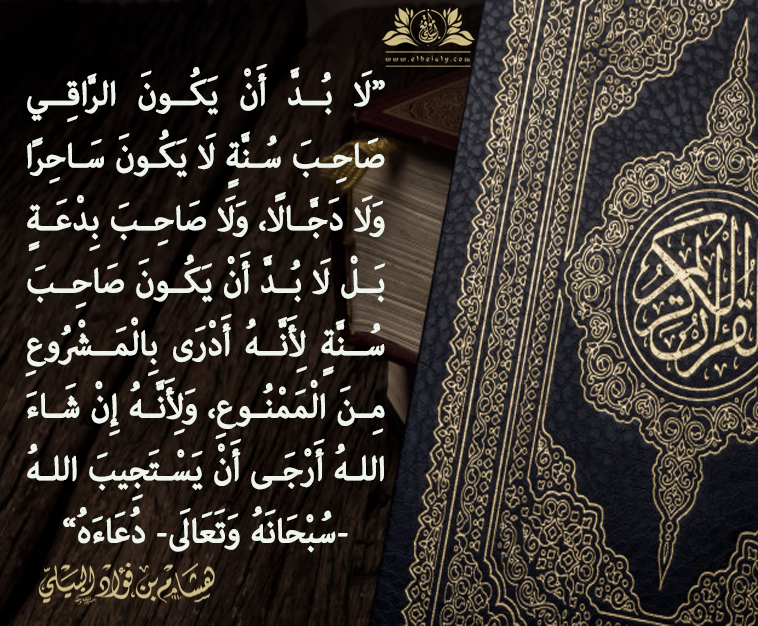 www.elbeialy.com
”لَا بُدَّ أَنْ يَكُونَ الرَّاقِي
صَاحِبَ سُنَّةٍ لَا يَكُونَ سَاحِرًا
وَلَا دَجَّالًا، وَلَا صَاحِبَ بِدْعَةٍ
بَلْ لَا بُدَّ أَنْ يَكُونَ صَاحِبَ
سُنَّةٍ لِأَنَّهُ أَدْرَى بِالْمَشْرُوعِ
مِنَ الْمَمْنُوعِ، وَلِأَنَّهُ إِنْ شَاءَ
اللهُ أَرْجَى أَنْ يَسْتَجِيبَ اللهُ
-سُبْحَانَهُ وَتَعَالَى- دُعَاءَهُ“
هشام بن فؤاد البيلي
القرآن الكريم